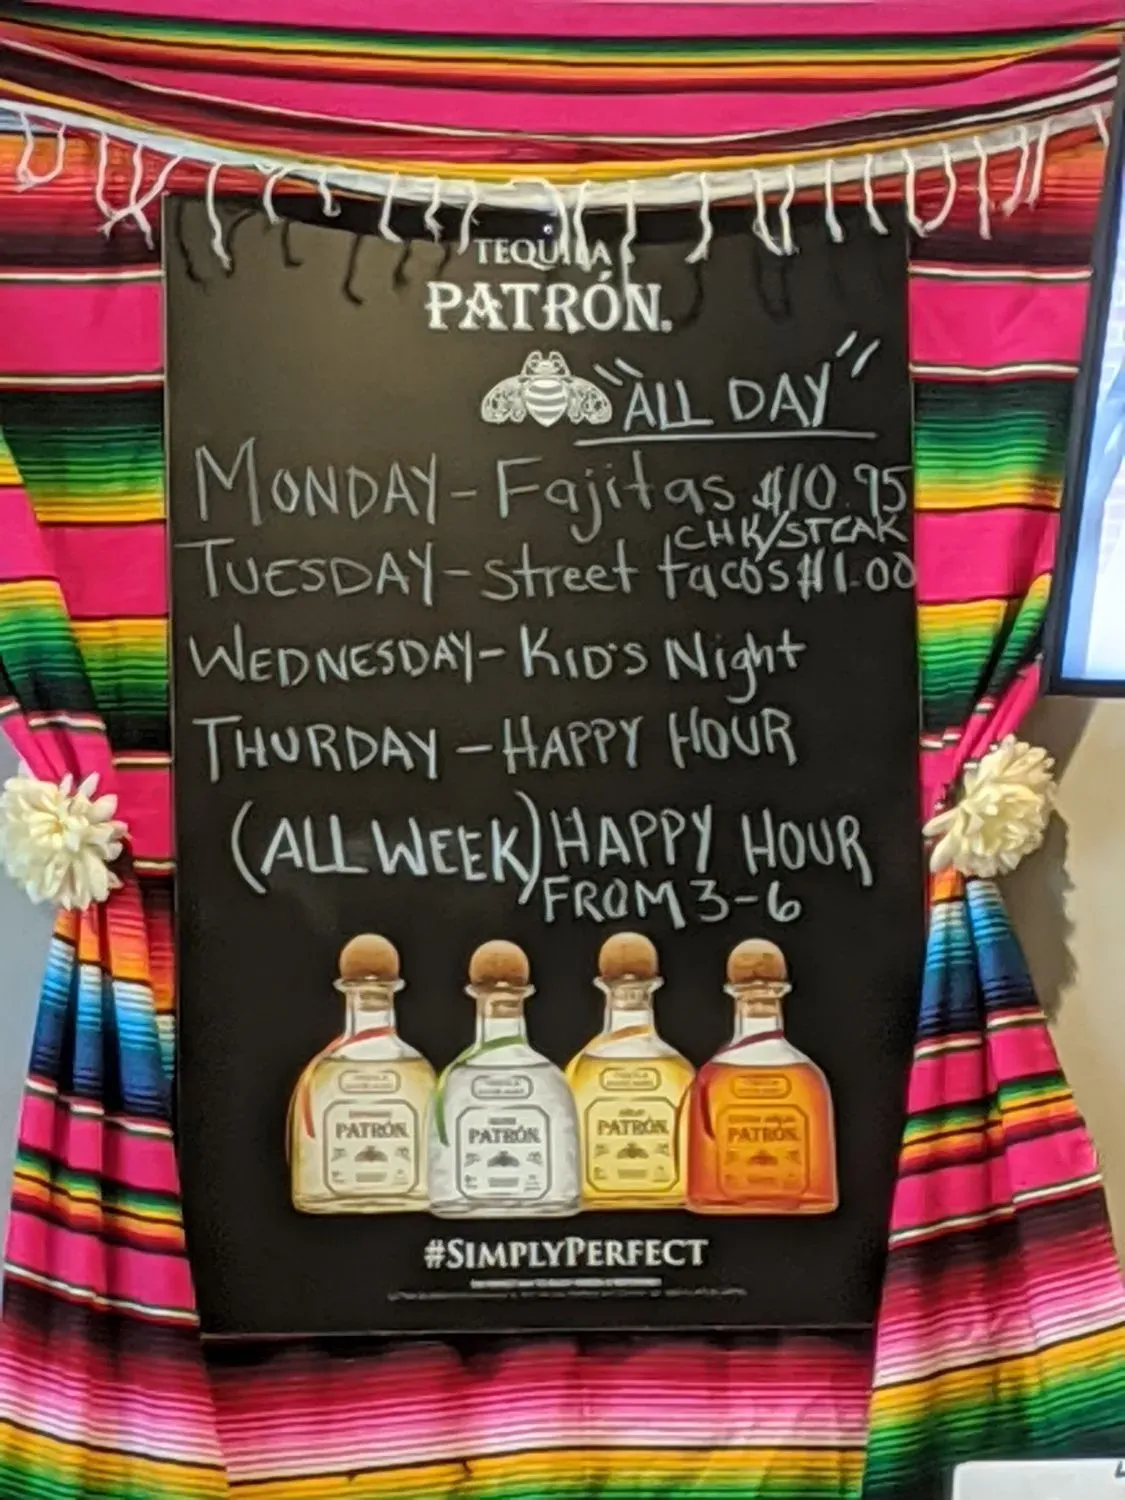 TEQUILA
PATRÓN.
"ALL DAY"
MONDAY - Fajitas $10.95
CHK/STEAK
TUESDAY - Street tacos $1.00
WEDNESDAY - KID'S Night
THURDAY - HAPPY HOUR
(ALL WEEK) HAPPY HOUR
FROM 3-6
PATRÓN PATRÓN PATRÓN PATRÓN
#SIMPLYPERFECT